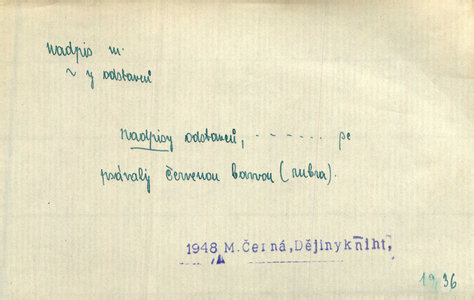 Nadpis m.
~ y odstavců
Nadpisy odstavců, - - - - - - - pe
psávaly červenou barvou (rubra).
1948 M. Černá, Dějiny kniht,
1936